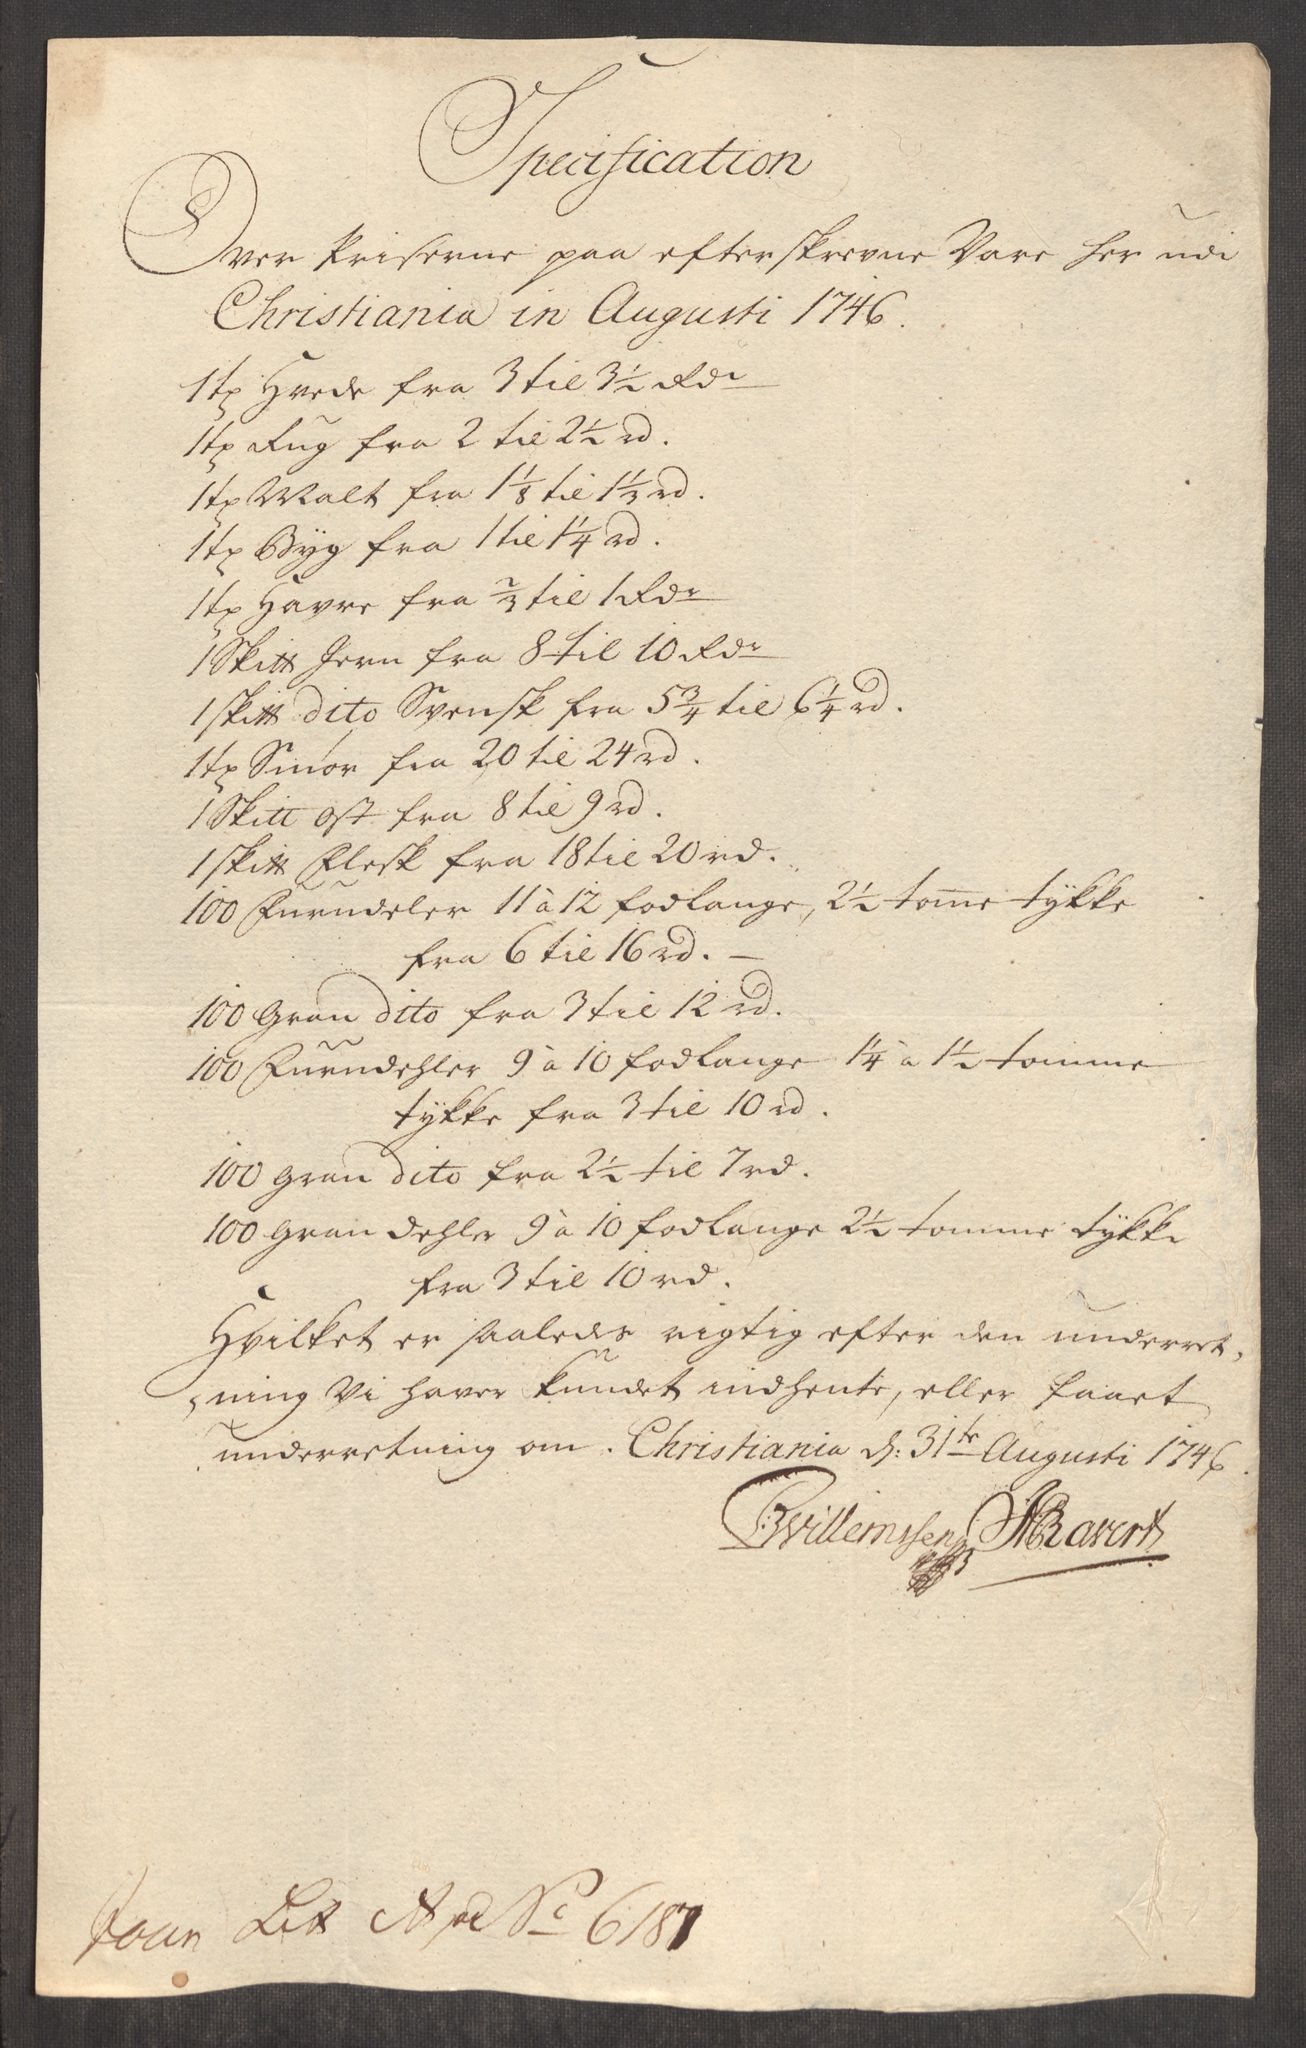 Specification
Over Priserne paa efterskrevne Vare her udi
Christiania in Augusti 1746.
1 tø Hvede fra 3 til 3 1/2 Rdr
1 tø Rug fra 2 til 2 1/2 rd.
1 tø Malt fra 1 1/8 til 1 1/3 rd.
1 tø Byg fra 1 til 1 1/4 rd.
1 tø Havre fra 2/3 til 1 Rdr
1 Skitt Jern fra 8 til 10 Rdr
1 skitt dito Svensk fra 5 3/4 til 6 1/4 rd.
1 tø Smør fra 20 til 24 rd.
1 Skitt Ost fra 8 til 9 rd.
1 skitt Flesk fra 18 til 20 rd.
100 Furudeler 11 à 12 fodlange, 2 1/2 tom̅e tykke
fra 6 til 16 rd. –
100 Gran dito fra 3 til 12 rd.
100 Furudehler 9 à 10 fodlange 1 1/4 à 1 1/2 tomme
tykke fra 3 til 10 rd.
100 gran dito fra 2 1/2 til 7 rd.
100 gran dehler 9 à 10 fodlange 2 1/2 tomme tykke
fra 3 til 10 rd.
Hvilket er saaledes rigtig efter den underret-
ning Vi haver kundet indhente, eller faaet
underretning om. Christiania d: 31te Augusti 1746.
Willemssen Ravert
Lit A No 6187